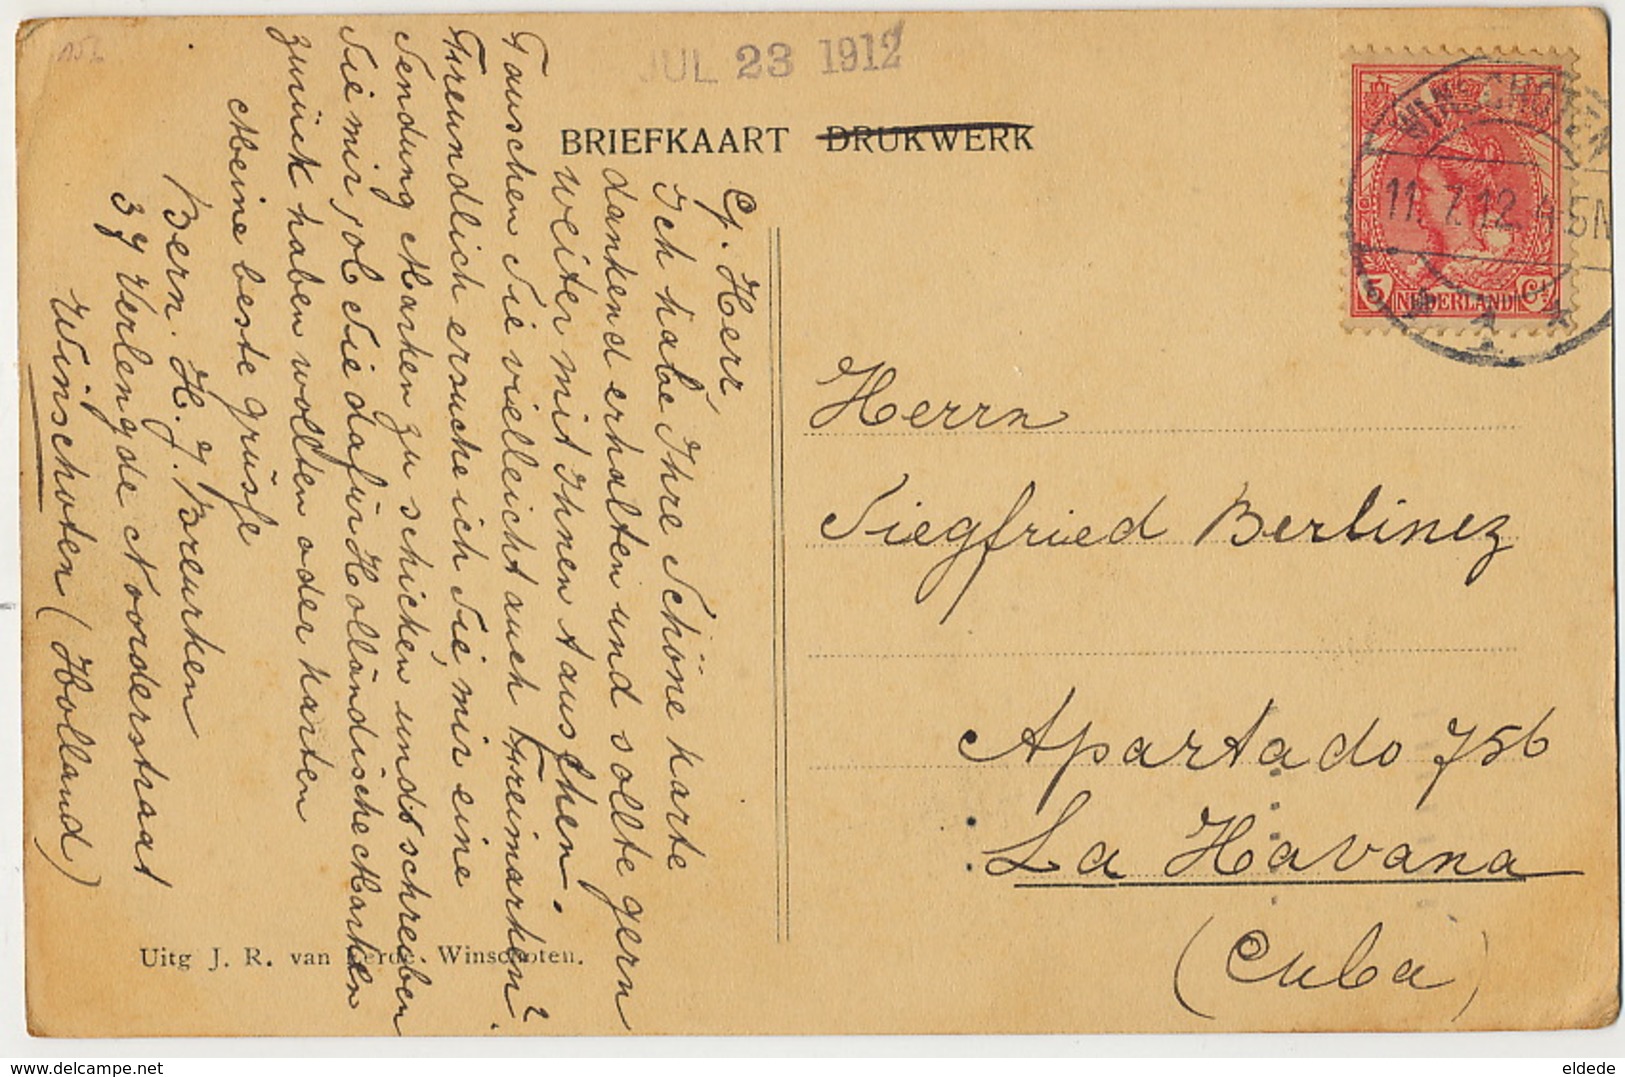 JUL 23 1912
BRIEFKAART DRUKWERK
WINSCHOTEN
11.7.12. 4-5N
5 NEDERLAND Ct
G. Herr,
Ich habe Ihre Schöne karte
dankend erhalten und sollte gern
weiter mit Ihnen tauschen.
Tauschen Sie vielleicht auch Freimarken?
Freundlich ersuche ich Sie, mir eine
Sendung Marken zu schicken und schreiben
Sie mir, ob Sie dafür Holländische Marken
zurück haben wollten oder karten
Meine beste grüsse
Bern. H. J. Breurken
39 Verlengde Noorderstraat
Winschoten (Holland)
Herrn
Siegfried Berlinez
Apartado 756
La Havana
(Cuba)
Uitg J. R. van Winschoten.
eldede
delcampe.net